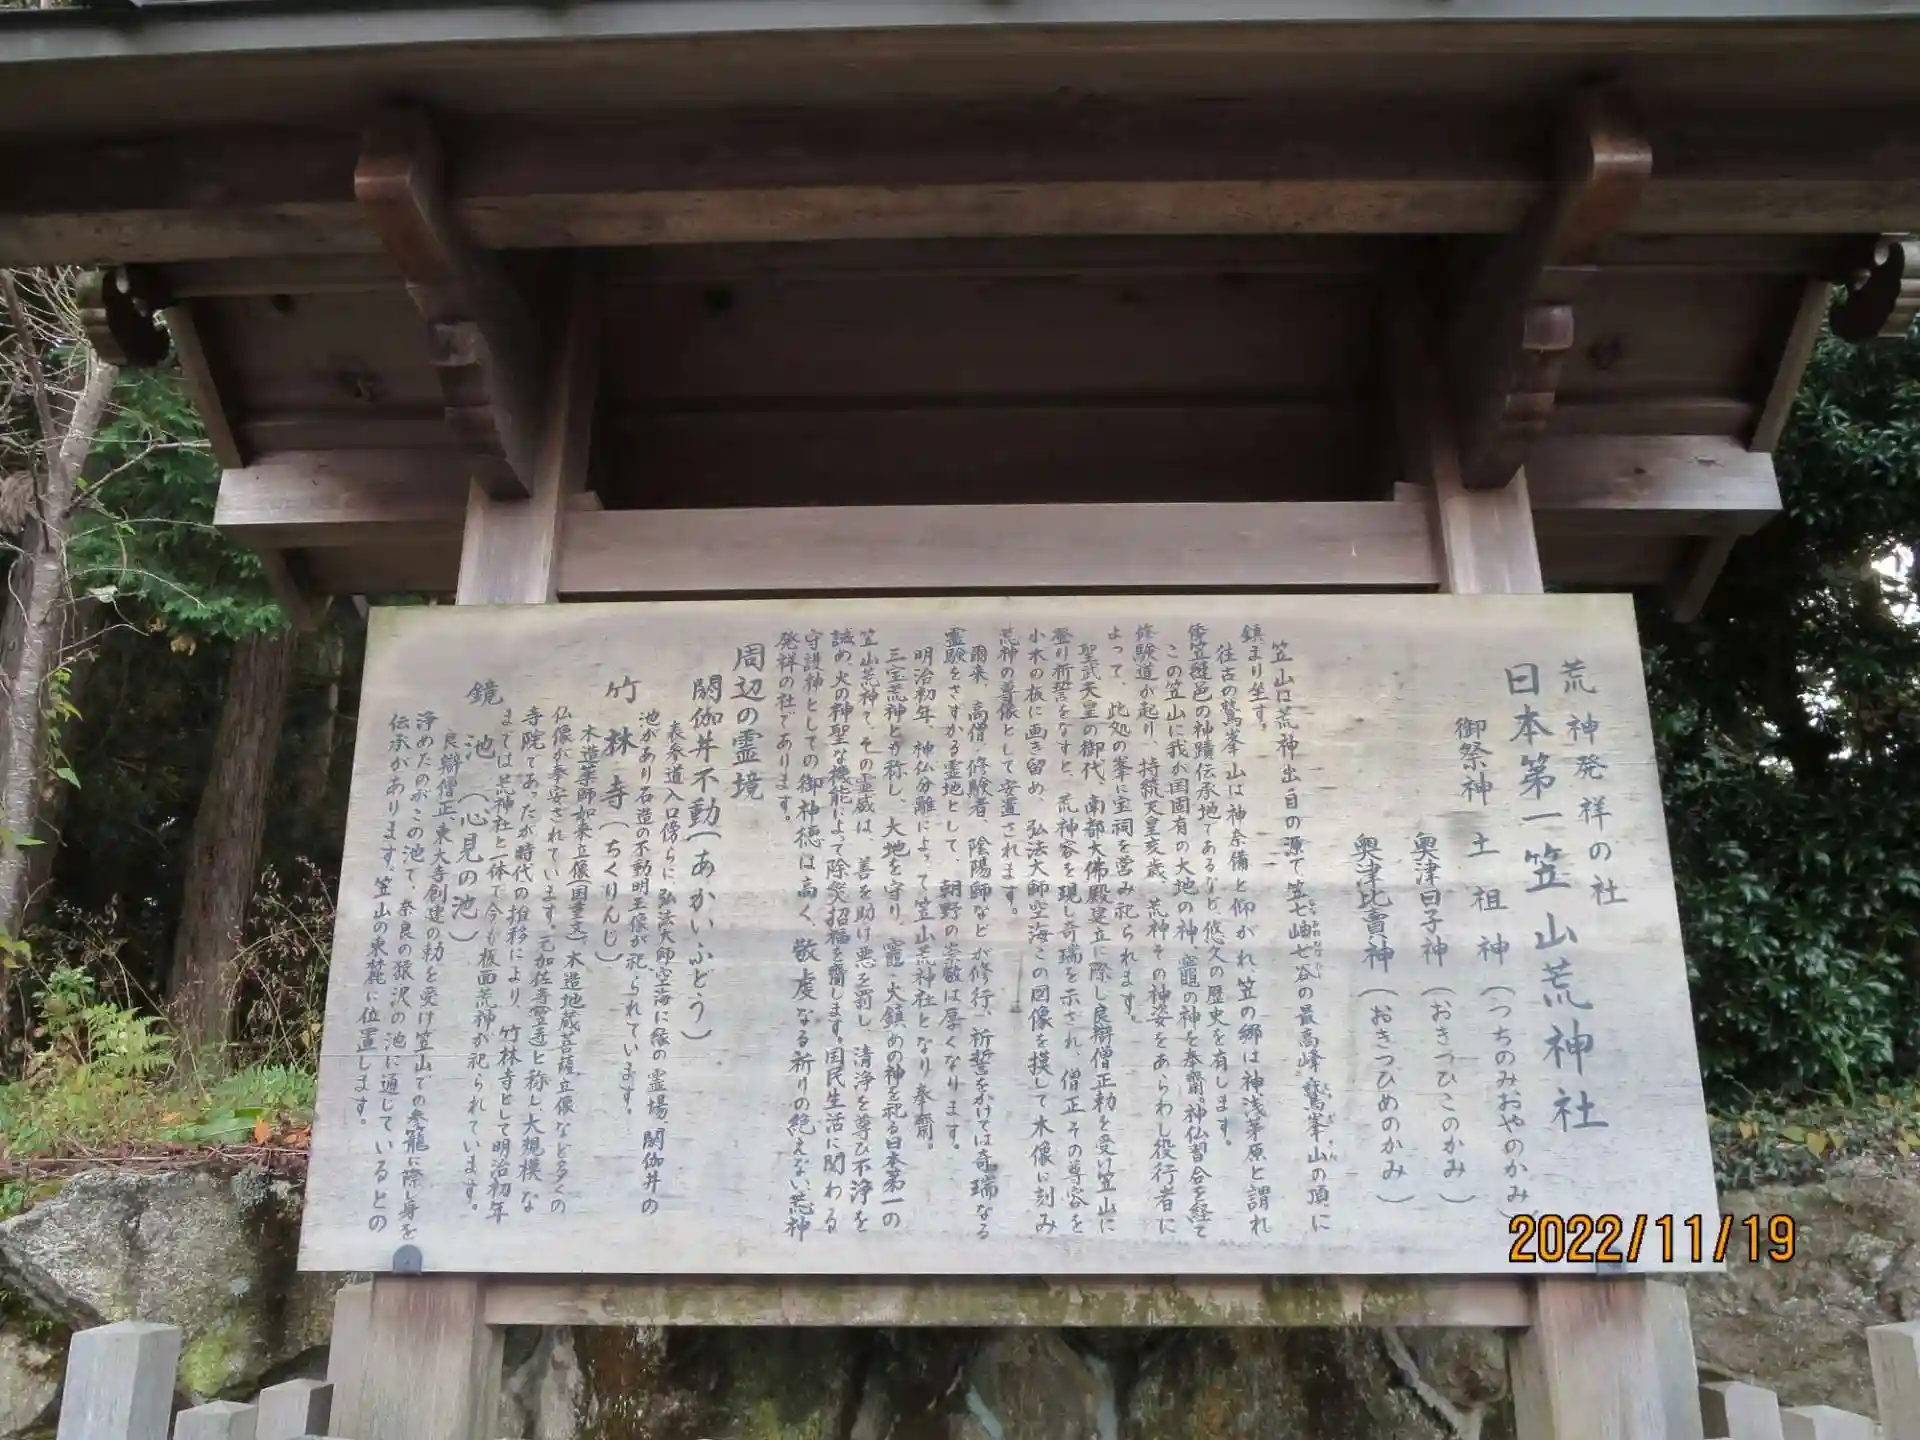 荒神発祥の社
日本第一笠山荒神社
御祭神 土祖神(つちのみおやのかみ)
奥津日子神(おきつひこのかみ)
奥津比賣神(おきつひめのかみ)
笠山は荒神出自の源で笠七岫七谷の最高峰、鷲峯山の頂に
鎮まり坐す。
往古の鷲峯山は神奈備と仰がれ、笠の郷は神浅茅原と謂れ
倭笠縫邑の神蹟伝承地であるなど、悠久の歴史を有します。
この笠山に我が国固有の大地の神、竈の神を奉齋。神仏習合を経て
修験道が起り、持統天皇亥歳、荒神その神姿をあらわし役行者に
よって、此処の峯に宝祠を営み祀られます。
聖武天皇の御代、南都大佛殿建立に際し良辯僧正勅を受け笠山に
登り祈誓をなすと、荒神容を現し奇瑞を示され、僧正その尊容を
小木の板に画き留め、弘法大師空海この図像を模して木像に刻み
荒神の尊像として安置されます。
爾来、高僧、修験者、陰陽師などが修行、祈誓をかけては奇瑞なる
霊験をさずかる霊地として、朝野の崇敬は厚くなります。
明治初年、神仏分離によって笠山荒神社となり奉齋。
三宝荒神とも称し、大地を守り、竈・火鎮めの神を祀る日本第一の
笠山荒神で、その霊威は、善を助け悪を罰し、清浄を尊び不浄を
誡め、火の神聖な機能によって除災招福を齎します。国民生活に関わる
守護神としての御神徳は高く、敬虔なる祈りの絶えない荒神
発祥の社であります。
周辺の霊境
閼伽井不動(あかいふどう)
表参道入口傍らに、弘法大師空海に縁の霊場、閼伽井の
池があり石造の不動明王像が祀られています。
竹林寺(ちくりんじ)
木造薬師如来立像(国重文)、木造地蔵菩薩立像など多くの
仏像が奉安されています。元加佐寺と称し、大規模な
寺院であったが時代の推移により、竹林寺として明治初年
までは荒神社と一体で今も板面荒神が祀られています。
鏡池(心見の池)
良辯僧正、東大寺創建の勅を受け笠山での参籠に際し身を
浄めたのがこの池で、奈良の猿沢の池に通じているとの
伝承があります。笠山の東麓に位置します。
2022/11/19